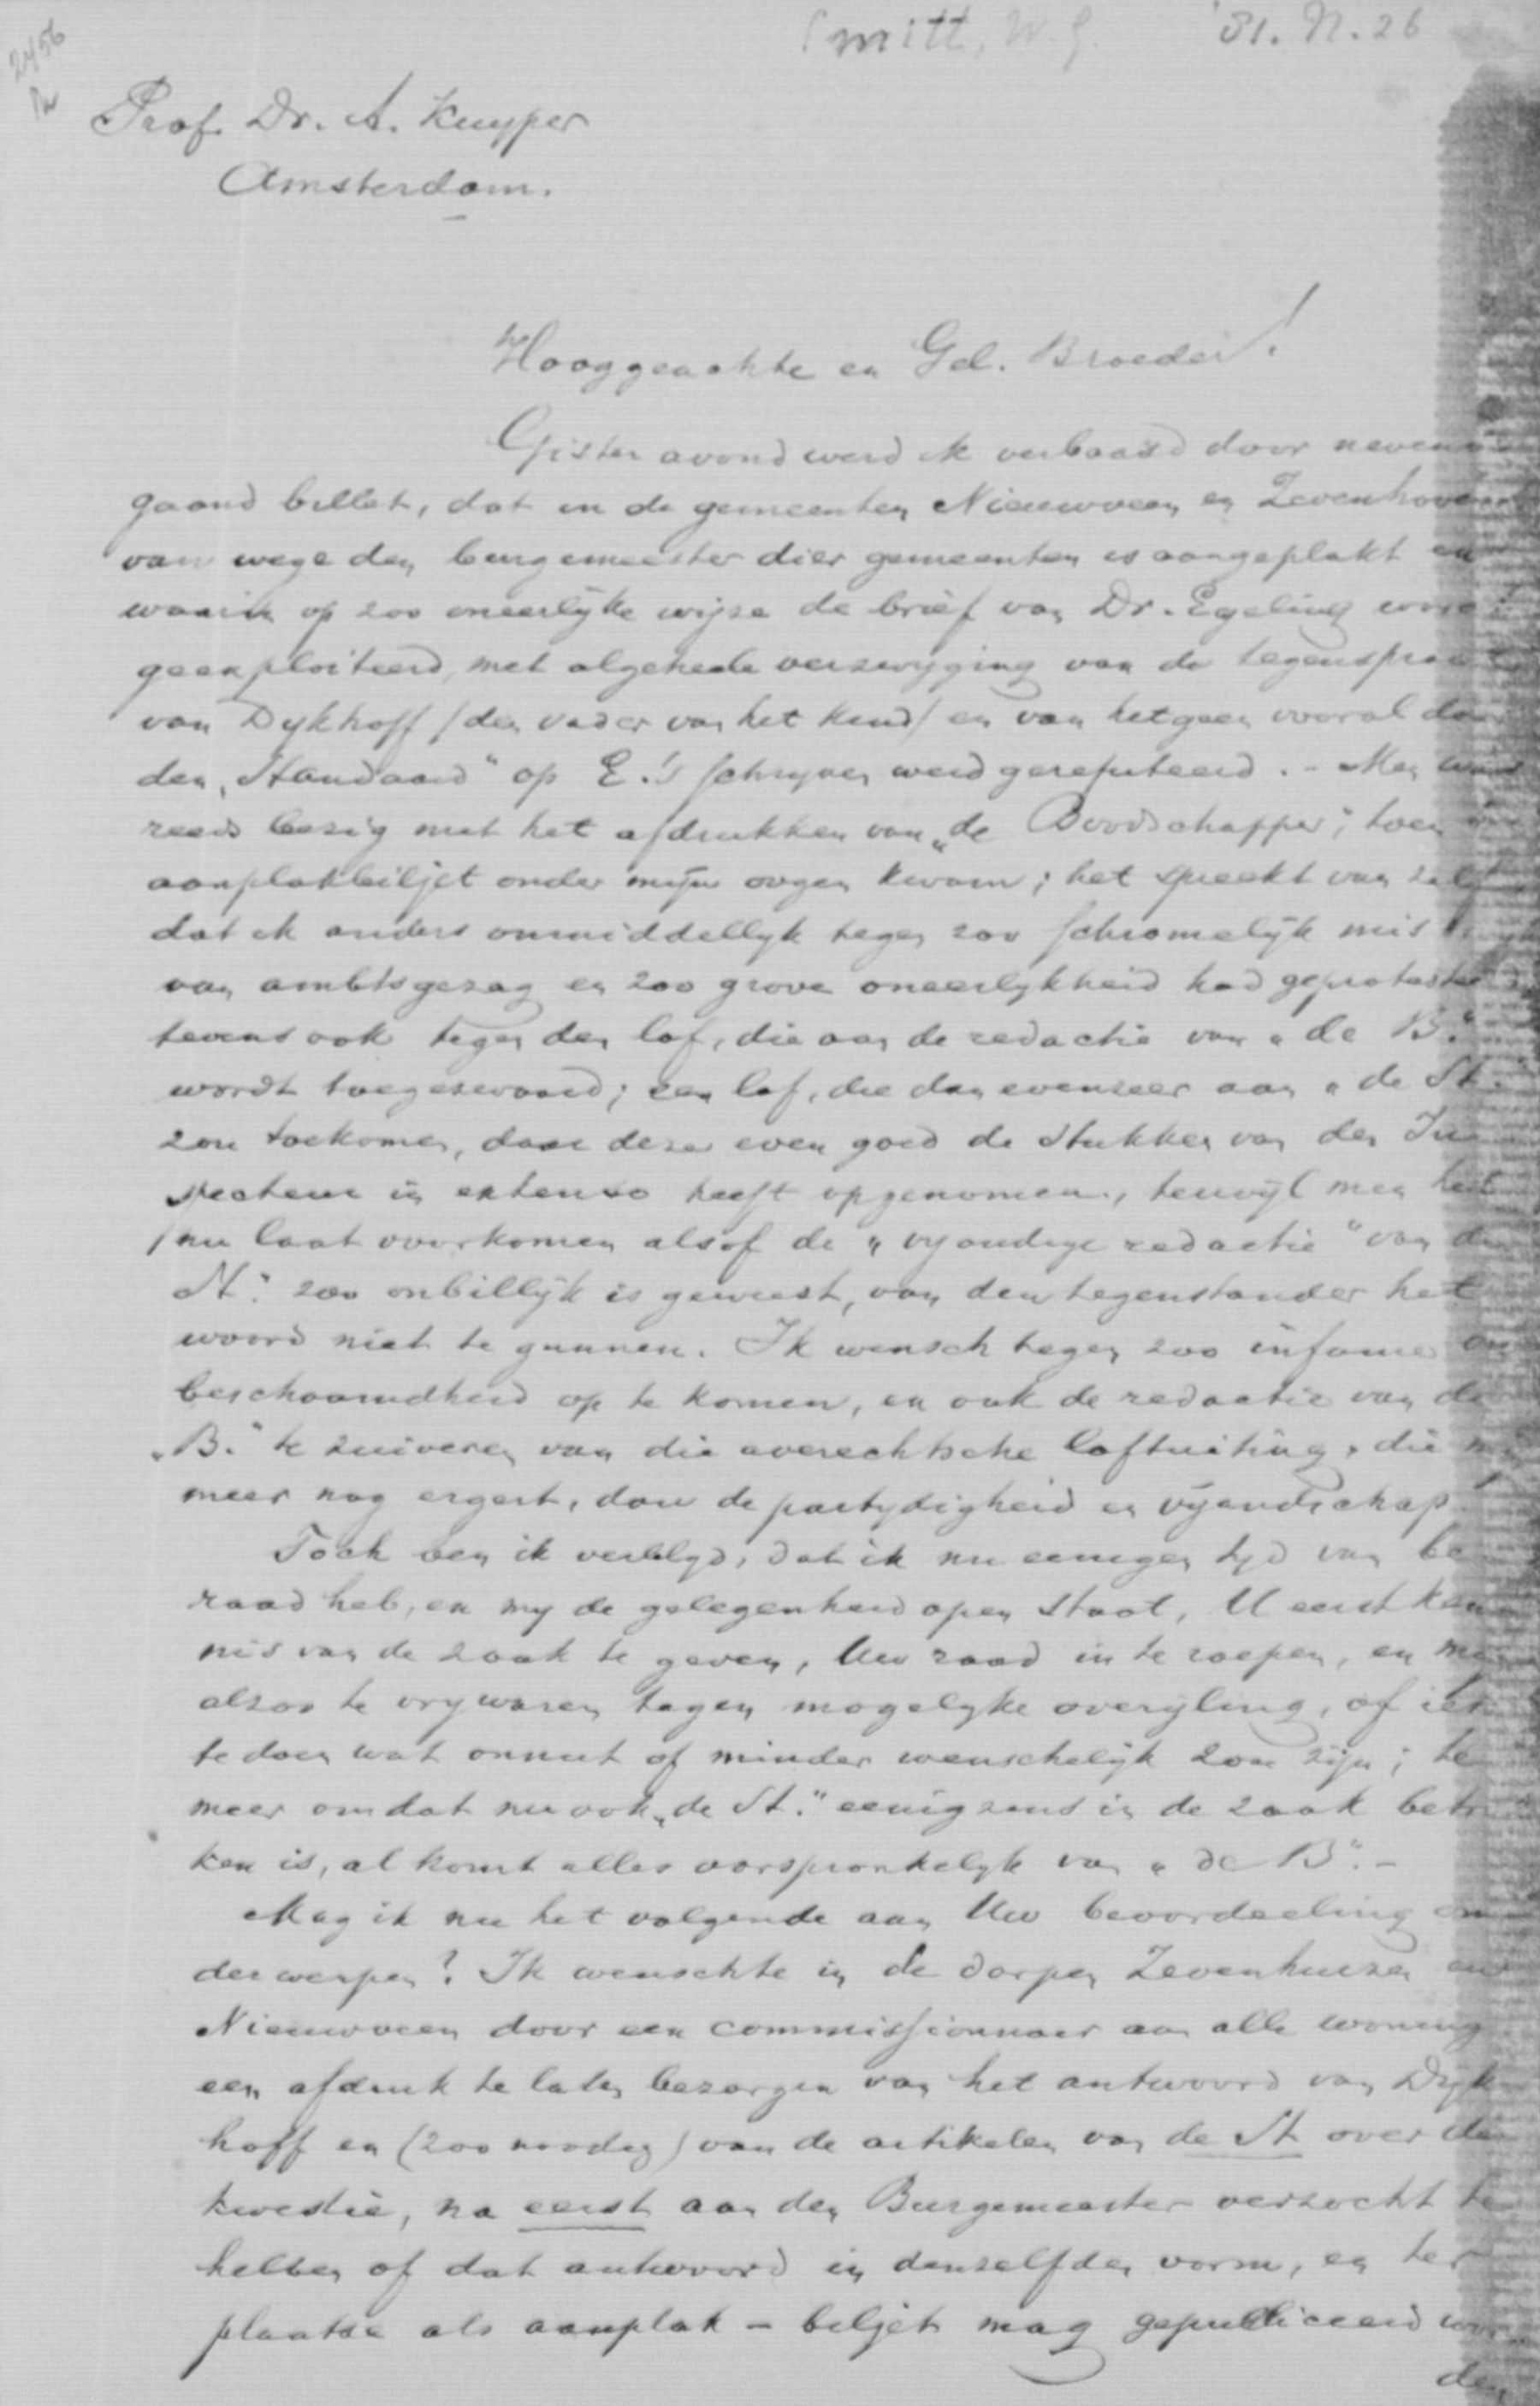 2456
Smitt, W. G. '81. N. 26
Prof. Dr. A. Kuyper
Amsterdam.
Hooggeachte en Gel. Broeder!
Gister avond werd ik verbaasd door nevens
gaand billet, dat in de gemeenten Nieuwveen en Zevenhoven
van wege den burgemeester dier gemeenten is aangeplakt en
waarin op zoo oneerlyke wijze de brief van Dr. Egeling word
geexploiteerd, met algeheele verzwyging van de tegenspraak
van Dykhoff (den vader van het kind) en van hetgeen vooral door
den "Standaard" op E.'s schryven werd gerefuteerd. - Men was
reeds bezig met het afdrukken van "de Boodschapper", toen
aanplakbiljet onder mijn oogen kwam; het spreekt van zelf
dat ik anders onmiddellyk tegen zoo schromelijk mis
van ambtsgezag en zoo grove oneerlykheid had geprotesteerd
tevens ook tegen den lof, die aan de redactie van "de B."
wordt toegezwaaid; een lof, die dan evenzeer aan "de St.
zou toekomen, daar deze even goed de stukken van den In
specteur in extenso heeft opgenomen, terwijl men het
nu laat voorkomen alsof de "vyandige redactie" van de
St." zoo onbillijk is geweest, van den tegenstander het
woord niet te gunnen. Ik wensch tegen zoo infame on
beschaamdheid op te komen, en ook de redactie van de
"B." te zuiveren van die averechtsche loftuiting, die my
meer nog ergert, dan de partydigheid en vyandschap.
Toch ben ik verblyd, dat ik nu eenigen tyd van be
raad heb, en my de gelegenheid open staat, U eerst ken
nis van de zaak te geven, Uw raad in te roepen, en my
alzoo te vrywaren tegen mogelyke overyling, of iets
te doen wat onnut of minder wenschelijk zou zijn; te
meer omdat nu ook "de St." eenigzins in de zaak betrok
ken is, al komt alles oorspronkelyk van "de B". -
Mag ik nu het volgende aan Uw beoordeeling on
derwerpen? Ik wenschte in de dorpen Zevenhuizen en
Nieuwveen door een commissionnair aan alle woning
een afdruk te laten bezorgen van het antwoord van Dyk
hoff en (zoo noodig) van de artikelen van de St over de
kwestie, na eerst aan den Burgemeester verzocht te
hebben of dat antwoord in denzelfden vorm, en ter
plaatse als aanplak - biljet mag gepubliceerd wor
den